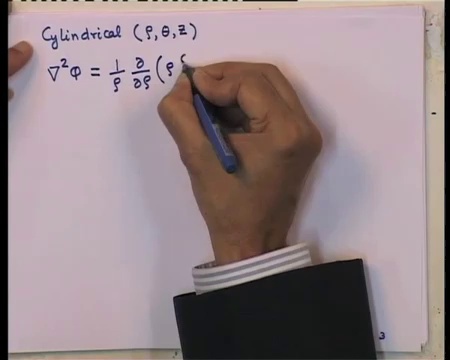 Cylindrical (ρ, θ, z)
∇²φ = 1/ρ ∂/∂ρ (ρ
3